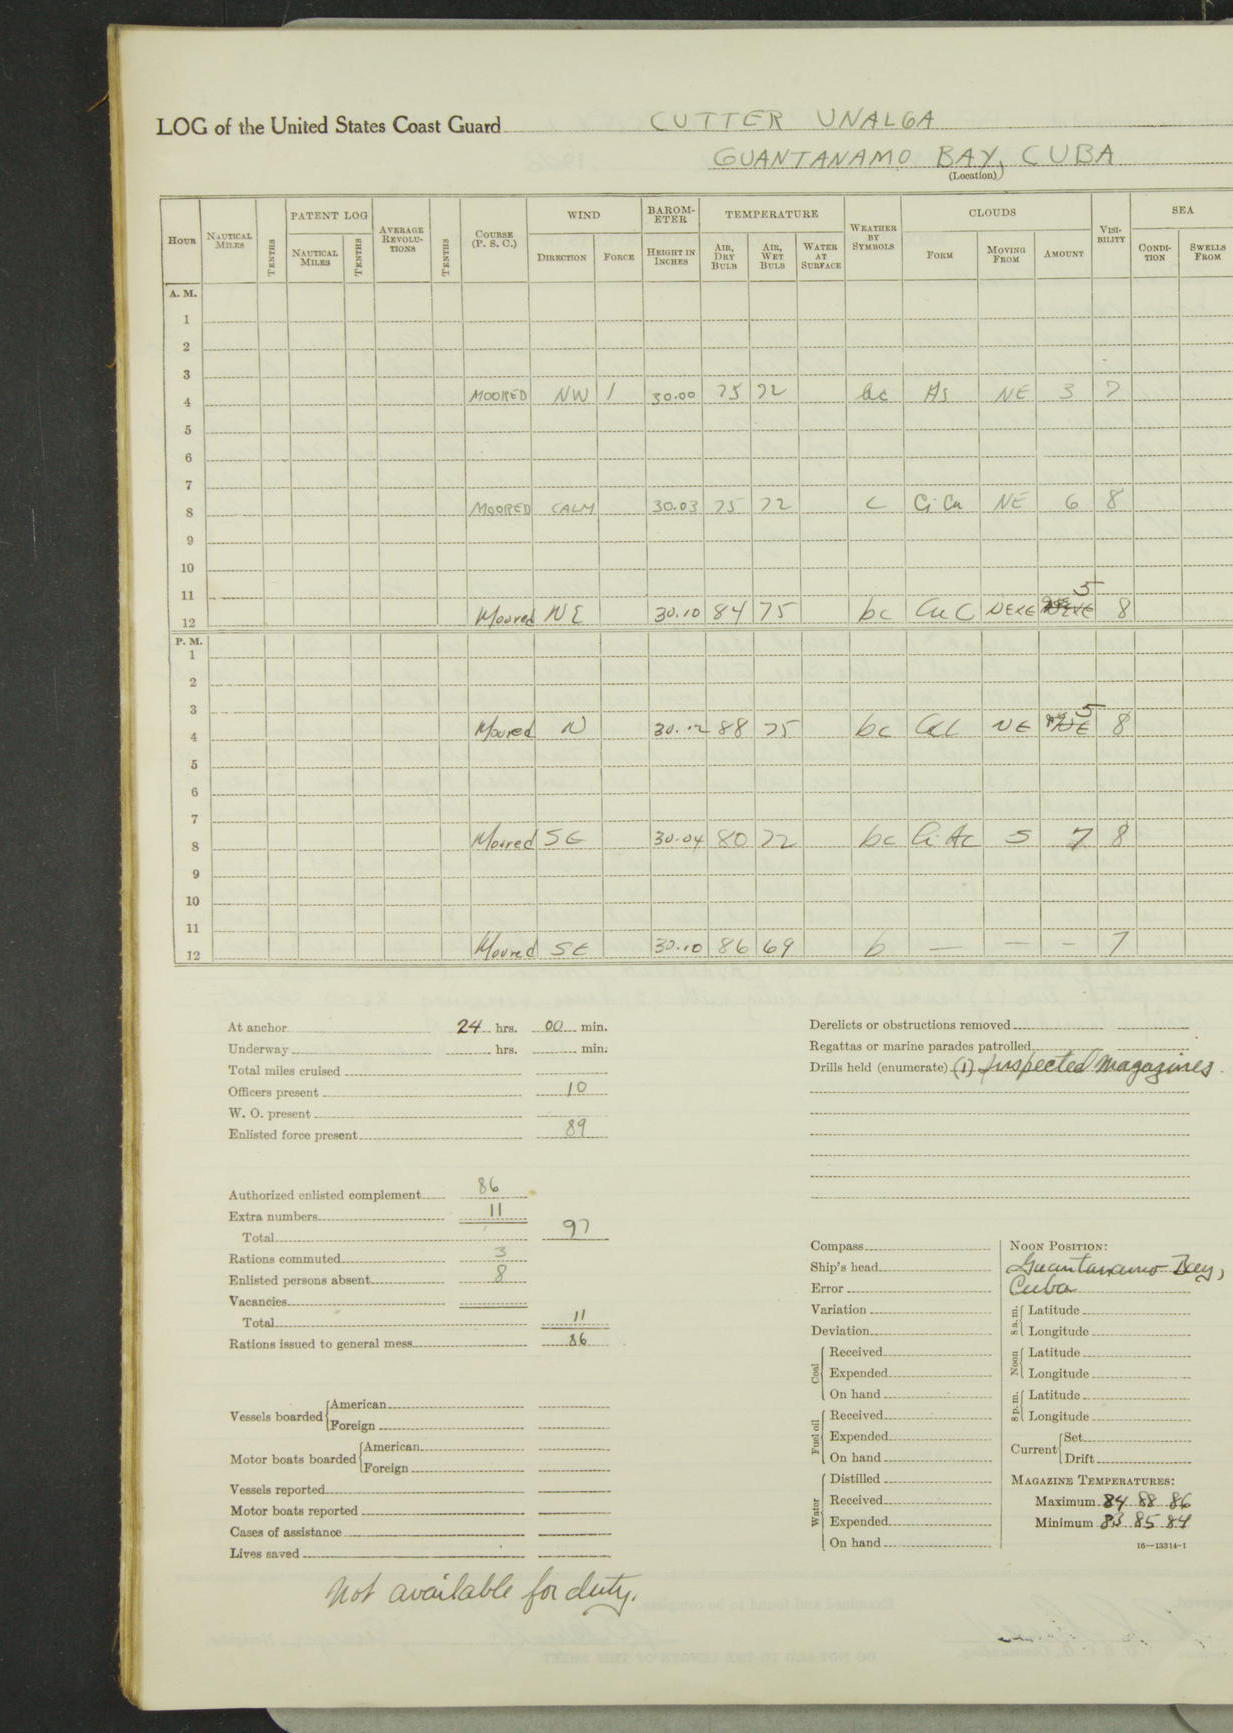 LOG of the United States Coast Guard CUTTER UNALGA
GUANTANAMO BAY, CUBA
(Location)
HOUR NAUTICAL MILES TENTHS PATENT LOG NAUTICAL MILES TENTHS AVERAGE REVOLU-TIONS TENTHS COURSE (P. S. C.) WIND DIRECTION FORCE BAROM-ETER HEIGHT IN INCHES TEMPERATURE AIR, DRY BULB AIR, WET BULB WATER AT SURFACE WEATHER BY SYMBOLS CLOUDS FORM MOVING FROM AMOUNT VISI-BILITY SEA CONDI-TION SWELLS FROM
A. M.
1
2
3
4 MOORED NW 1 30.00 75 72 bc As NE 3 7
5
6
7
8 MOORED CALM 30.03 75 72 c Ci Cu NE 6 8
9
10
11
12 Moored NE 30.10 84 75 bc Cu C NExE 5 8
P. M.
1
2
3
4 Moored N 30.12 88 75 bc NE 5 8
5
6
7
8 Moored SE 30.04 80 72 bc Ci Ac S 7 8
9
10
11
12 Moored SE 30.10 86 69 b — — - 7
At anchor 24 hrs. 00 min.
Underway hrs. min.
Total miles cruised
Officers present 10
W. O. present
Enlisted force present 89
Authorized enlisted complement 86
Extra numbers 11
Total 97
Rations commuted 3
Enlisted persons absent 8
Vacancies
Total 11
Rations issued to general mess 86
Vessels boarded American
Foreign
Motor boats boarded American
Foreign
Vessels reported
Motor boats reported
Cases of assistance
Lives saved
Not available for duty.
Derelicts or obstructions removed
Regattas or marine parades patrolled
Drills held (enumerate) (1) Inspected Magazines.
Compass
Ship's head
Error
Variation
Deviation
Coal Received
Expended
On hand
Fuel oil Received
Expended
On hand
Water Distilled
Received
Expended
On hand
NOON POSITION:
Guantanamo Bay,
Cuba
8 a. m. Latitude
Longitude
Noon Latitude
Longitude
8 p. m. Latitude
Longitude
Current Set
Drift
MAGAZINE TEMPERATURES:
Maximum 84 88 86
Minimum 83 85 84
16—13314-1